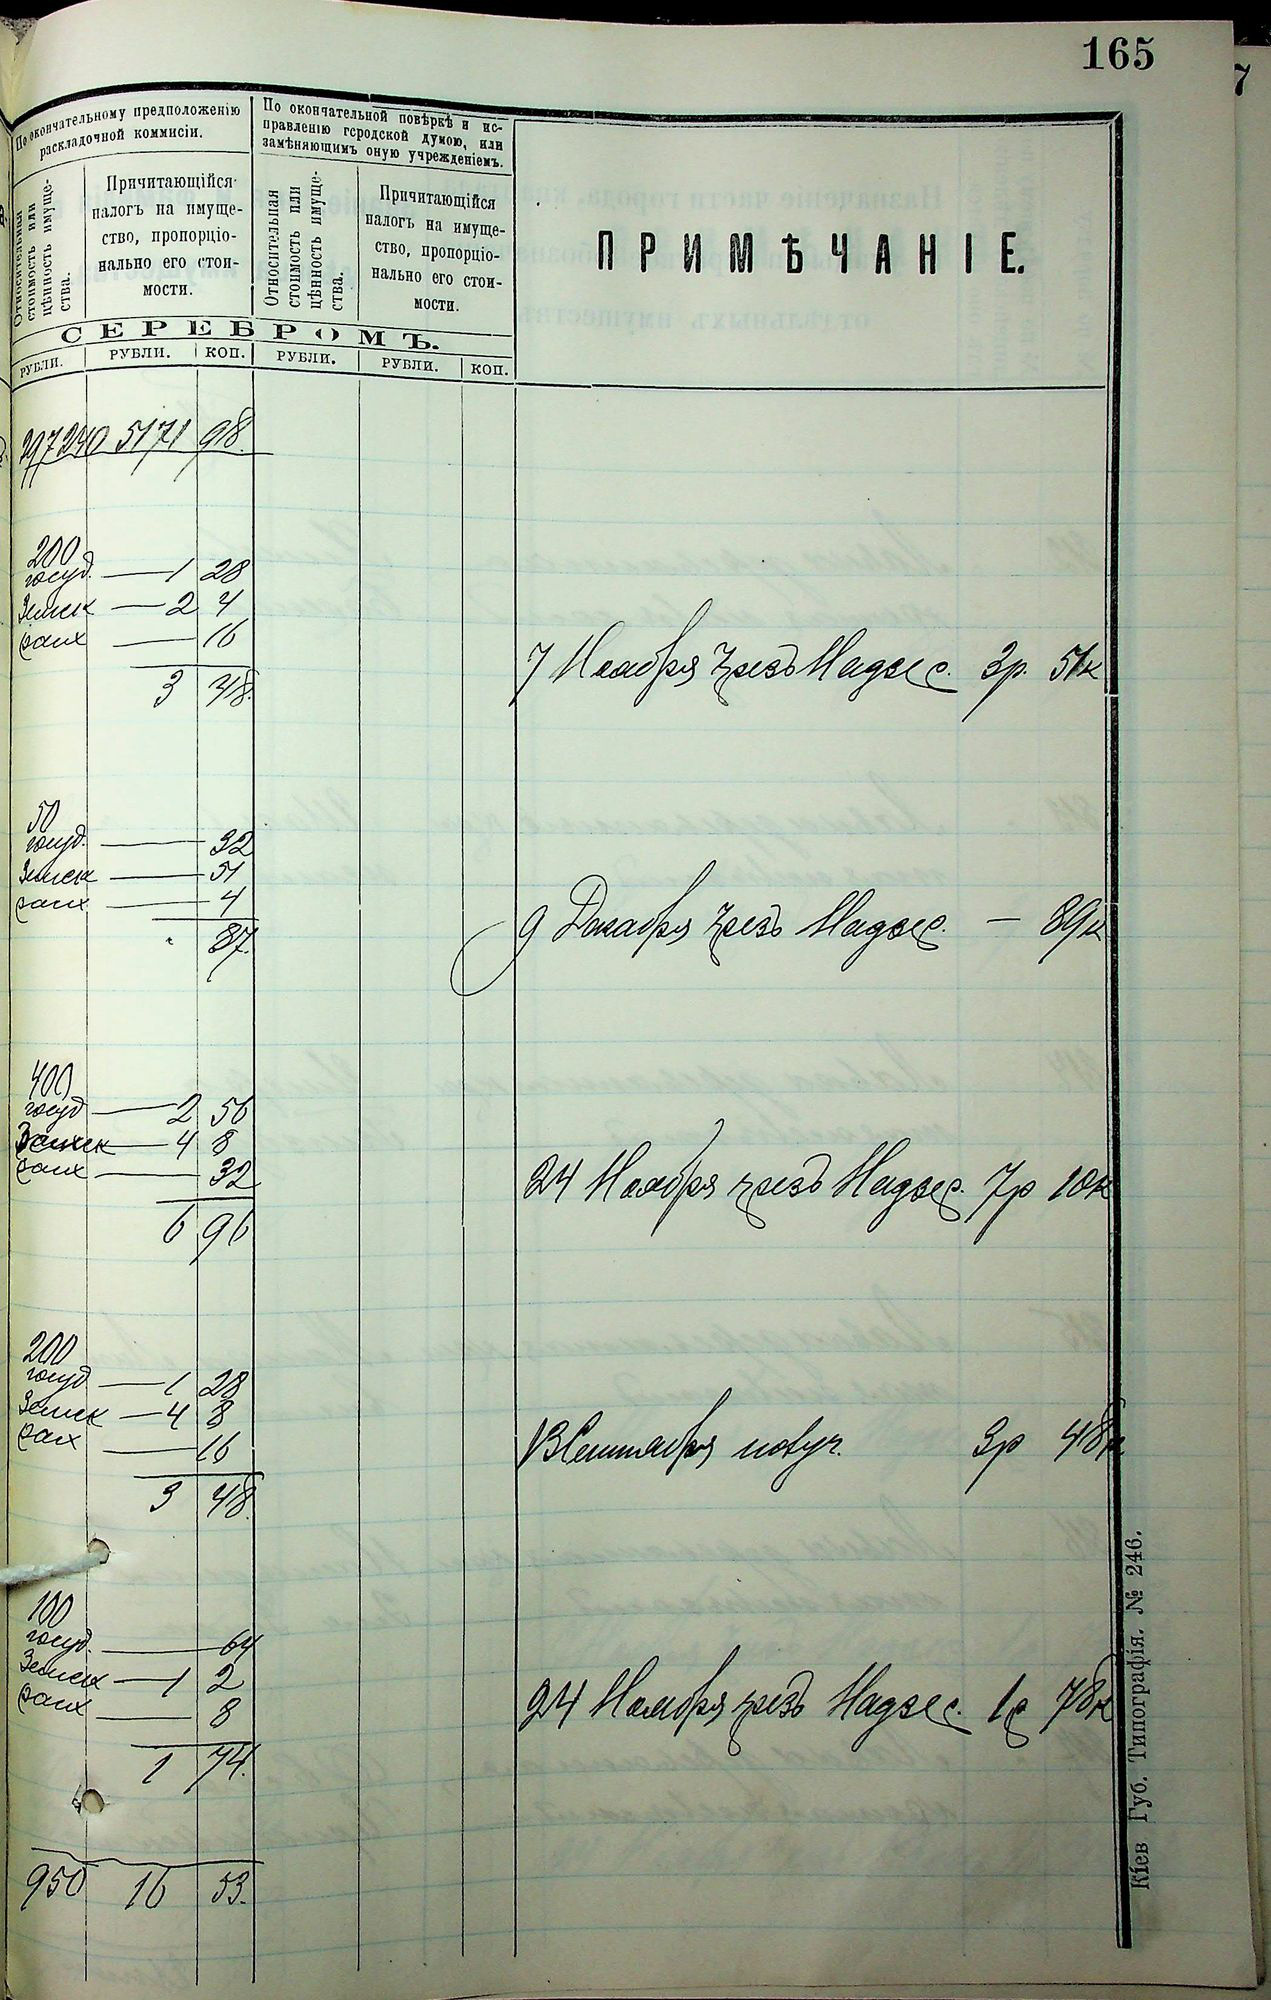 165
По окончательному предположенію
раскладочной коммисіи.
По окончательной повѣркѣ и ис-
правленію городской думою, или
замѣняющимъ оную учрежденіемъ.
ПРИМѢЧАНІЕ.
Относительная
стоимость или
цѣнность имуще-
ства.
Причитающійся
налогъ на имуще-
ство, пропорціо-
нально его стои-
мости.
Относительная
стоимость или
цѣнность имуще-
ства.
Причитающійся
налогъ на имуще-
ство, пропорціо-
нально его стои-
мости.
СЕРЕБРОМЪ.
РУБЛИ. РУБЛИ. КОП. РУБЛИ. РУБЛИ. КОП.
297240 5171 98.
200
госуд. — 1 28
Земск — 2 4
— 16
3 48.
7 Ноября чрезъ Надзес. 3р. 51к
50
госуд. — 32
Земск — 51
— 4
" 87.
9 Декабря чрезъ Надзес. — 89к
400
госуд — 2 56
Земск — 4 8
— 32
6 96
24 Ноября чрезъ Надзес. 7р 10к
200
госуд — 1 28
Земск — 4 8
— 16
3 48.
13 Сентября 3р 48к
100
госуд. — 64
Земск — 1 2
— 8
1 74.
24 Ноября чрезъ Надзес. 1р 78к
950 16 53.
Кіев Губ. Типографія. № 246.